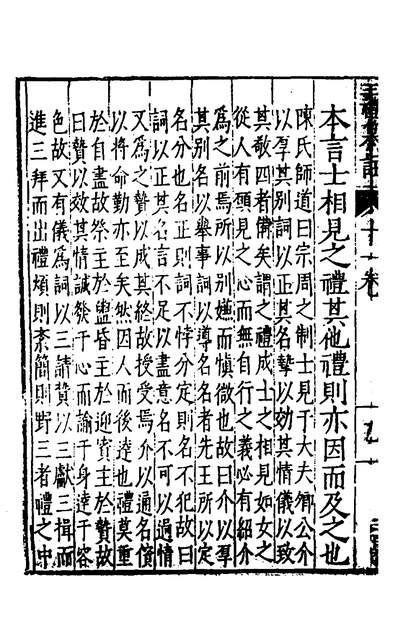 三禮集註 十一卷
本言士相見之禮其他禮則亦因而及之也
陳氏師道曰宗周之制士見于大夫卿公介
以厚其别詞以正其名摯以効其情儀以致
其敬四者備矣謂之禮成士之相見如女之
從人有願見之心而無自行之義必有紹介
爲之前焉所以别嫌而慎微也故曰介以厚
其别名以舉事詞以導名名者先王所以定
名分也名正則詞不悖分定則名不犯故曰
詞以正其名言不足以盡意名不可以過情
又爲之贄以成其終故授受焉介以通名儐
以將命勤亦至矣然因人而後達也禮莫重
於自盡故祭主於鬯昏主於迎賓主於贄故
曰贄以效其情誠發于心而諭于身達于容
色故又有儀焉詞以三請贄以三獻三揖而
進三拜而出禮煩則柰簡則野三者禮之中